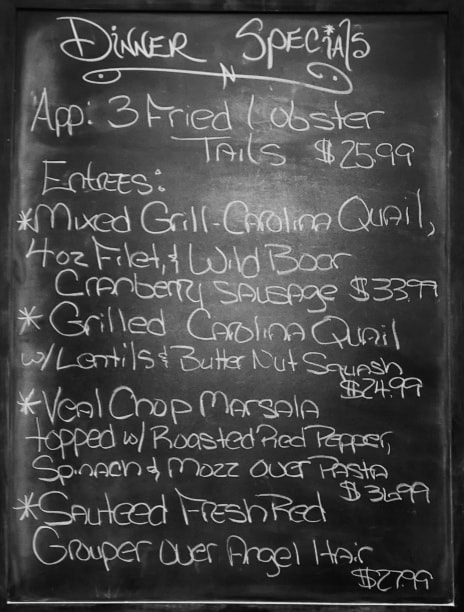 Dinner Specials
App: 3 Fried Lobster
Tails $25.99
Entrees:
*Mixed Grill-Carolina Quail,
4oz Filet, & Wild Boar
Cranberry Sausage $33.99
* Grilled Carolina Quail
w/Lentils & Butter Nut Squash
$24.99
*Veal Chop Marsala
topped w/Roasted Red Pepper,
Spinach & Mozz over Pasta
$36.99
*Sauteed Fresh Red
Grouper over Angel Hair
$27.99